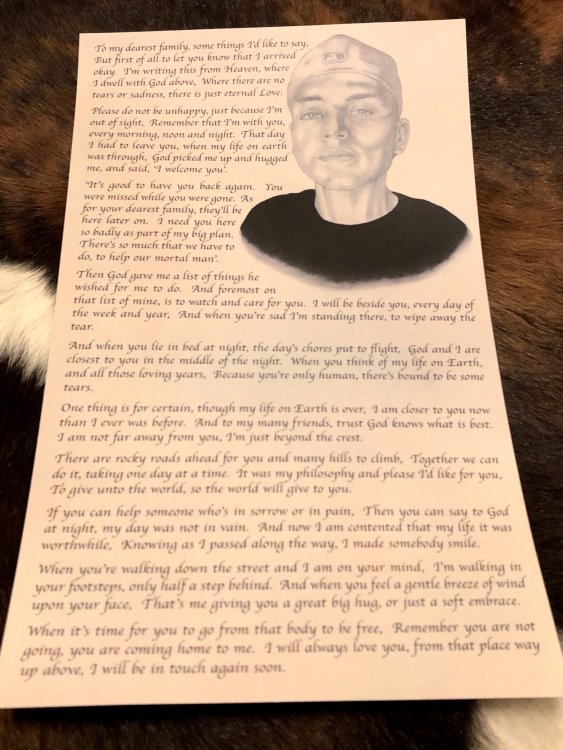 To my dearest family, some things I'd like to say,
But first of all to let you know that I arrived
okay. I'm writing this from Heaven, where
I dwell with God above, Where there are no
tears or sadness, there is just eternal Love.
Please do not be unhappy, just because I'm
out of sight, Remember that I'm with you,
every morning, noon and night. That day
I had to leave you, when my life on earth
was through, God picked me up and hugged
me, and said, 'I welcome you'.
'It's good to have you back again. You
were missed while you were gone. As
for your dearest family, they'll be
here later on. I need you here
so badly as part of my big plan.
There's so much that we have to
do, to help our mortal man'.
Then God gave me a list of things he
wished for me to do. And foremost on
that list of mine, is to watch and care for you. I will be beside you, every day of
the week and year, And when you're sad I'm standing there, to wipe away the
tear.
And when you lie in bed at night, the day's chores put to flight, God and I are
closest to you in the middle of the night. When you think of my life on Earth,
and all those loving years, Because you're only human, there's bound to be some
tears.
One thing is for certain, though my life on Earth is over, I am closer to you now
than I ever was before. And to my many friends, trust God knows what is best.
I am not far away from you, I'm just beyond the crest.
There are rocky roads ahead for you and many hills to climb, Together we can
do it, taking one day at a time. It was my philosophy and please I'd like for you,
To give unto the world, so the world will give to you.
If you can help someone who's in sorrow or in pain, Then you can say to God
at night, my day was not in vain. And now I am contented that my life it was
worthwhile, Knowing as I passed along the way, I made somebody smile.
When you're walking down the street and I am on your mind, I'm walking in
your footsteps, only half a step behind. And when you feel a gentle breeze of wind
upon your face, That's me giving you a great big hug, or just a soft embrace.
When it's time for you to go from that body to be free, Remember you are not
going, you are coming home to me. I will always love you, from that place way
up above, I will be in touch again soon.